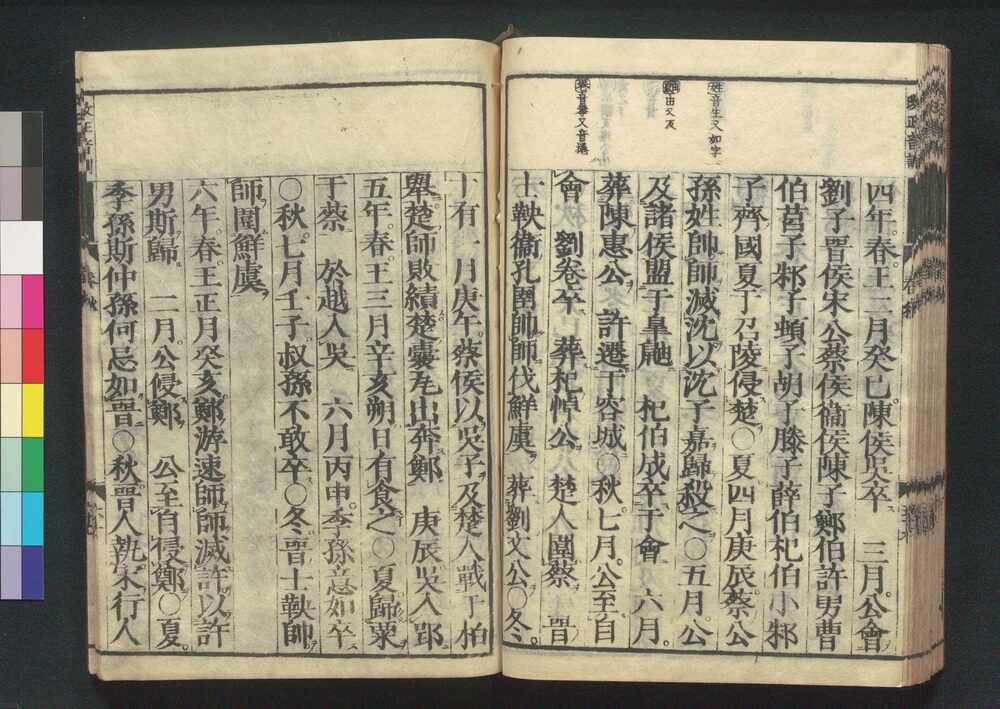 姓音生又如字
由又反
音舉又音據
四年春王二月癸巳陳侯吳卒　三月公會
劉子晉侯宋公蔡侯衞侯陳子鄭伯許男曹
伯莒子邾子頓子胡子滕子薛伯杞伯小邾
子齊國夏于召陵侵楚○夏四月庚辰蔡公
孫姓帥師滅沈以沈子嘉歸殺之○五月公
及諸侯盟于皐鼬　杞伯成卒于會　六月
葬陳惠公　許遷于容城○秋七月公至自
會　劉卷卒　葬杞悼公　楚人圍蔡　晉
士鞅衞孔圉帥師伐鮮虞　葬劉文公○冬
十有一月庚午蔡侯以吳子及楚人戰于柏
舉楚師敗績楚囊瓦出奔鄭　庚辰吳入郢
五年春王三月辛亥朔日有食之○夏歸粟
于蔡　於越入吳　六月丙申季孫意如卒
○秋七月壬子叔孫不敢卒○冬晉士鞅帥
師圍鮮虞
六年春王正月癸亥鄭游速帥師滅許以許
男斯歸　二月公侵鄭　公至自侵鄭○夏
季孫斯仲孫何忌如晉○秋晉人執宋行人
改正音訓